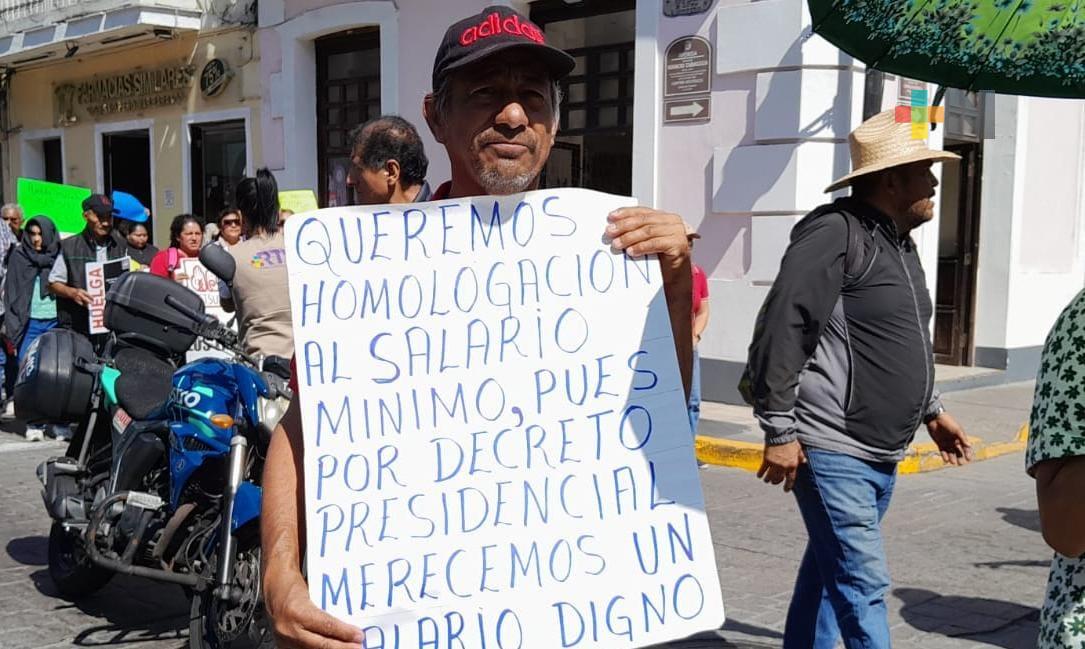 FARMACIAS SIMILARES
adidas
HUELGA
QUEREMOS
HOMOLOGACION
AL SALARIO
MINIMO, PUES
POR DECRETO
PRESIDENCIAL
MERECEMOS UN
SALARIO DIGNO